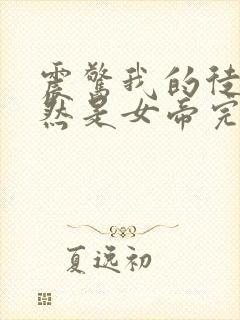 震惊我的徒
然是女帝完
夏逸初